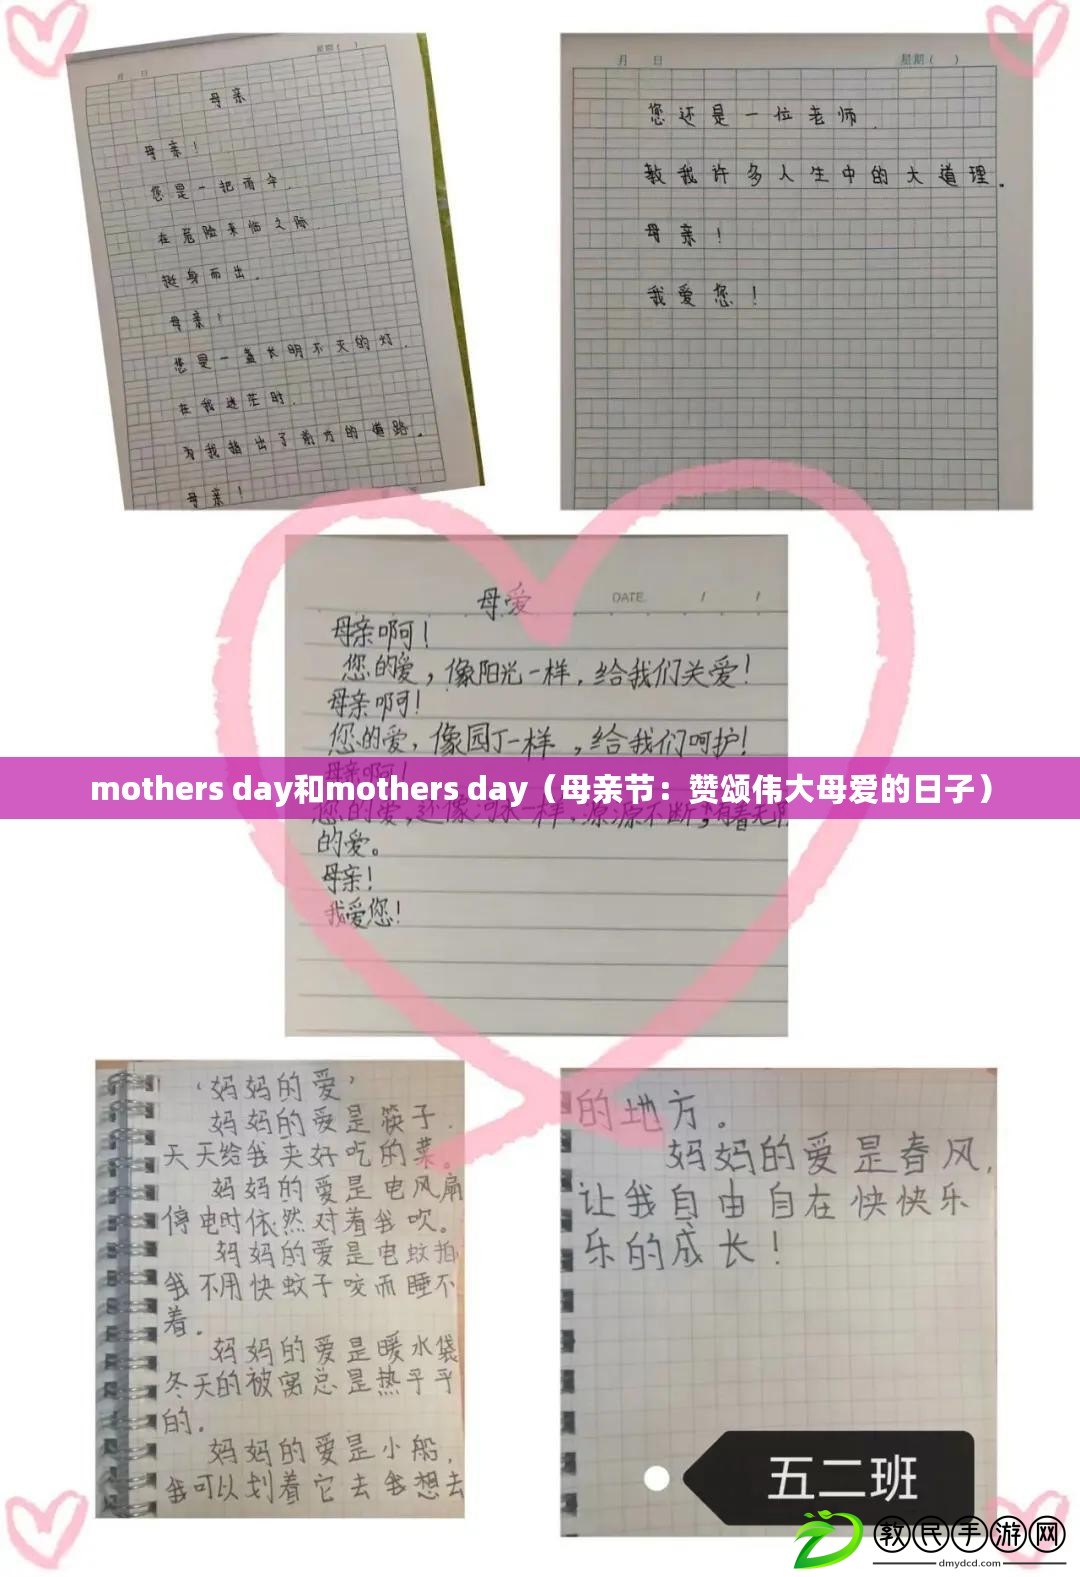 月 日 星期( )
母亲
母亲！
您是一把雨伞．
在危险来临之际．
挺身而出．
母亲！
您是一盏长明不灭的灯．
在我迷茫时．
为我指出了前方的道路．
母亲！
月 日 星期( )
您还是一位老师．
教我许多人生中的大道理．
母亲！
我爱您！
母爱
DATE. / /
母亲啊！
您的爱，像阳光一样，给我们关爱！
母亲啊！
您的爱，像园丁一样，给我们呵护！
母亲啊！
mothers day和mothers day（母亲节：赞颂伟大母爱的日子）
您的爱，还像河水一样，源源不断，有着无限
的爱。
母亲！
我爱您！
‘妈妈的爱’
妈妈的爱是筷子．
天天给我夹好吃的菜。
妈妈的爱是电风扇
停电时依然对着我吹。
妈妈的爱是电蚊拍
我不用快蚊子咬而睡不
着．
妈妈的爱是暖水袋
冬天的被窝总是热乎乎
的．
妈妈的爱是小船，
我可以划着它去我想去
的地方。
妈妈的爱是春风，
让我自由自在快快乐
乐的成长！
五二班
教民手游网
dmydcd.com